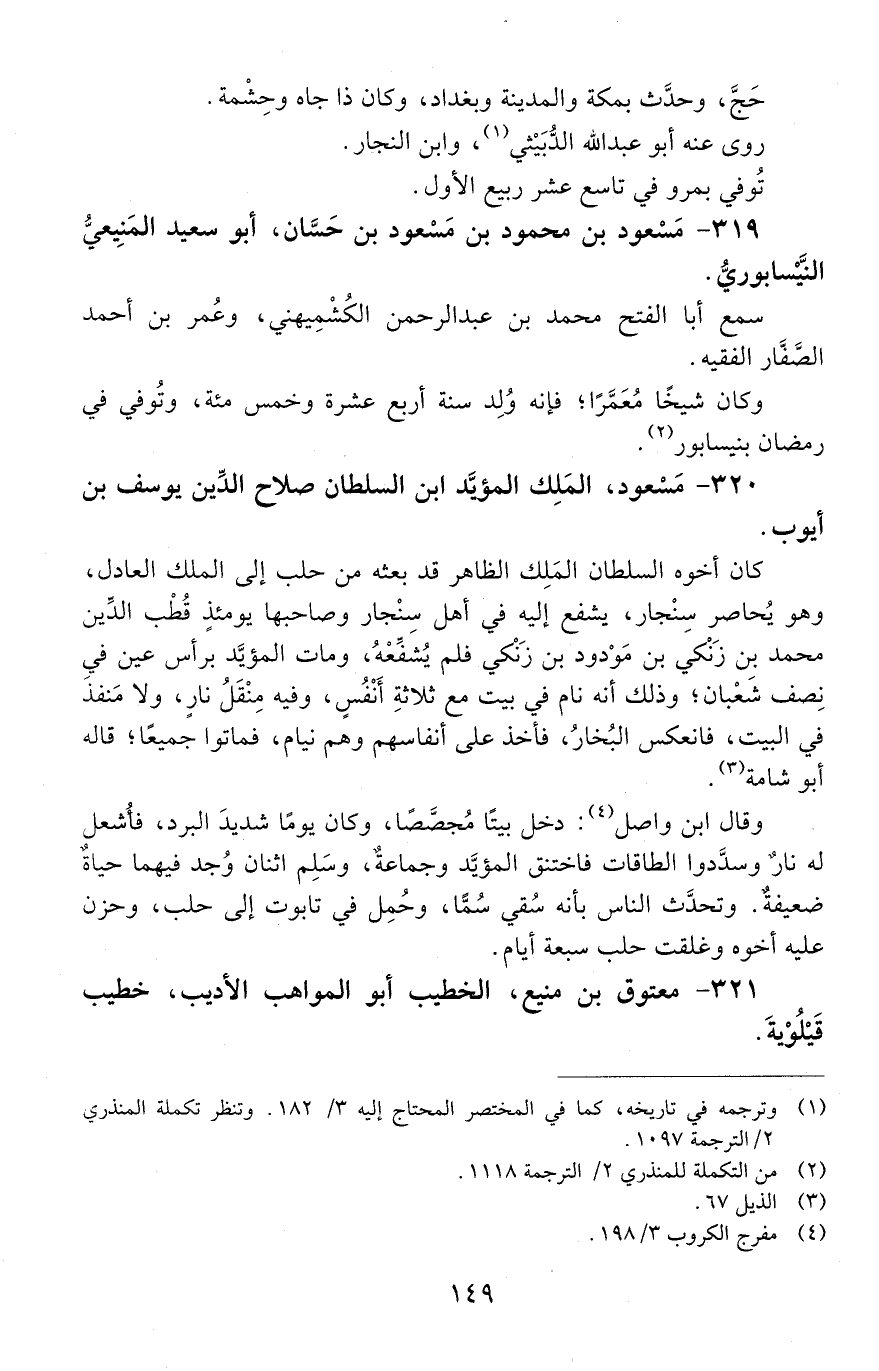 حَجَّ، وحدَّث بمكة والمدينة وبغداد، وكان ذا جاه وحِشْمة.
روى عنه أبو عبدالله الدُّبَيْثي(١)، وابن النجار.
تُوفي بمرو في تاسع عشر ربيع الأول.
٣١٩- مَسْعود بن محمود بن مَسْعود بن حَسَّان، أبو سعيد المَنِيعيُّ
النَّيْسابوريُّ.
سمع أبا الفتح محمد بن عبدالرحمن الكُشْمِيهني، وعُمر بن أحمد
الصَّفَّار الفقيه.
وكان شيخًا مُعَمَّرًا؛ فإنه وُلِد سنة أربع عشرة وخمس مئة، وتُوفي في
رمضان بنيسابور(٢).
٣٢٠- مَسْعود، المَلِك المؤيَّد ابن السلطان صلاح الدِّين يوسف بن
أيوب.
كان أخوه السلطان المَلِك الظاهر قد بعثه من حلب إلى الملك العادل،
وهو يُحاصر سِنْجار، يشفع إليه في أهل سِنْجار وصاحبها يومئذٍ قُطْب الدِّين
محمد بن زَنْكي بن مَوْدود بن زَنْكي فلم يُشفِّعْهُ، ومات المؤيَّد برأس عين في
نِصف شَعْبان؛ وذلك أنه نام في بيت مع ثلاثةِ أَنْفُسٍ، وفيه مِنْقَلُ نارٍ، ولا مَنفذَ
في البيت، فانعكس البُخارُ، فأخذ على أنفاسهم وهم نيام، فماتوا جميعًا؛ قاله
أبو شامة(٣).
وقال ابن واصل(٤): دخل بيتًا مُجصَّصًا، وكان يومًا شديدَ البرد، فأُشعل
له نارٌ وسدَّدوا الطاقات فاختنق المؤيَّد وجماعةٌ، وسَلِم اثنان وُجد فيهما حياةٌ
ضعيفةٌ. وتحدَّث الناس بأنه سُقي سُمًّا، وحُمِل في تابوت إلى حلب، وحزن
عليه أخوه وغلقت حلب سبعة أيام.
٣٢١- معتوق بن منيع، الخطيب أبو المواهب الأديب، خطيب
قَيْلُوْيةَ.
(١) وترجمه في تاريخه، كما في المختصر المحتاج إليه ٣/ ١٨٢. وتنظر تكملة المنذري
٢/ الترجمة ١٠٩٧.
(٢) من التكملة للمنذري ٢/ الترجمة ١١١٨.
(٣) الذيل ٦٧.
(٤) مفرج الكروب ٣/ ١٩٨.
١٤٩